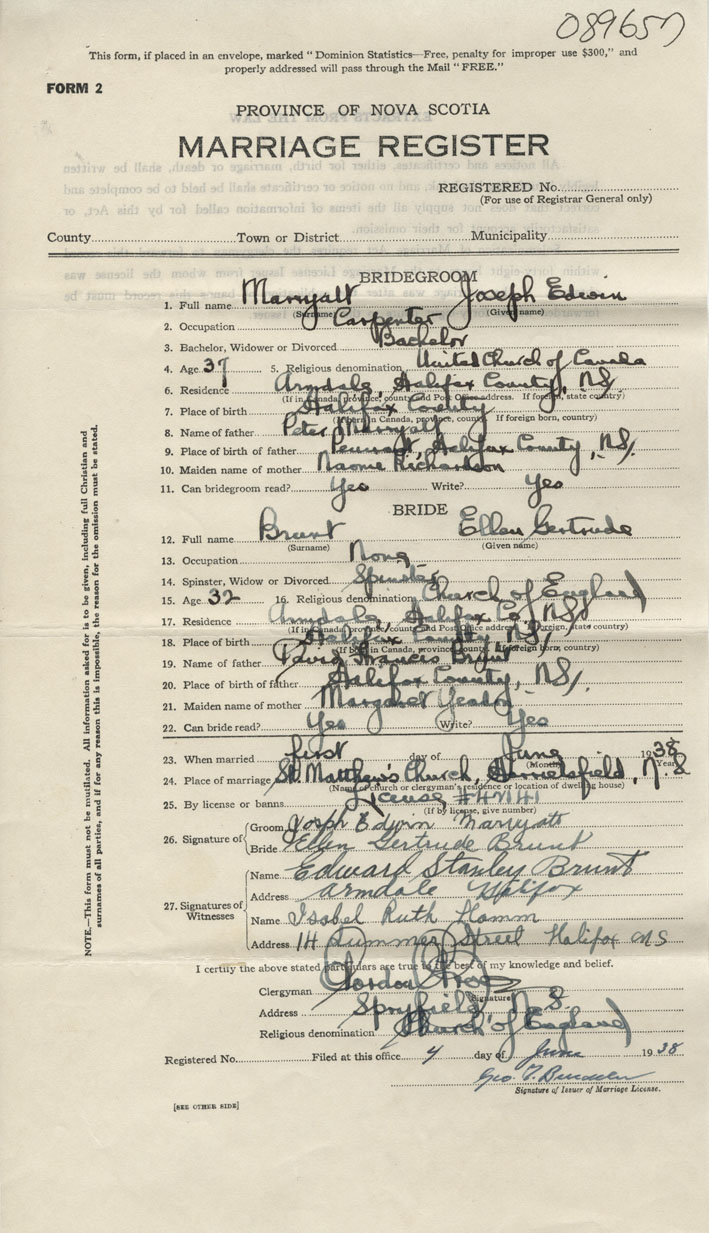 089657
This form, if placed in an envelope, marked "Dominion Statistics—Free, penalty for improper use $300," and
properly addressed will pass through the Mail "FREE."
FORM 2
PROVINCE OF NOVA SCOTIA
MARRIAGE REGISTER
REGISTERED No.
(For use of Registrar General only)
County Town or District Municipality
BRIDEGROOM
1. Full name Marryatt Joseph Edwin
(Surname) (Given name)
2. Occupation Carpenter
3. Bachelor, Widower or Divorced Bachelor
4. Age 37 5. Religious denomination United Church of Canada
6. Residence Armdale, Halifax County, N.S.
(If in Canada, province, county and Post Office address. If foreign, state country)
7. Place of birth Halifax County
(If born in Canada, province, county If foreign born, country)
8. Name of father Peter Marryatt
9. Place of birth of father Pennant, Halifax County, N.S.
10. Maiden name of mother Naomi Richardson
11. Can bridegroom read? Yes Write? Yes
BRIDE
12. Full name Brunt Ellen Gertrude
(Surname) (Given name)
13. Occupation None
14. Spinster, Widow or Divorced Spinster
15. Age 32 16. Religious denomination Church of England
17. Residence Armdale, Halifax Co., N.S.
(If in Canada, province, county and Post Office address. If foreign, state country)
18. Place of birth Halifax County N.S.
(If born in Canada, province, county. If foreign born, country)
19. Name of father David Francis Brunt
20. Place of birth of father Halifax County, N.S.
21. Maiden name of mother Margaret Yeadon
22. Can bride read? Yes Write? Yes
23. When married first day of June 1938
(Month) (Year)
24. Place of marriage St. Matthew's Church, Harrietsfield, N.S
(Name of church or clergyman's residence or location of dwelling house)
25. By license or banns License #47141
(If by license, give number)
26. Signature of Groom Joseph Edwin Marryatt
Bride Ellen Gertrude Brunt
27. Signatures of Witnesses Name Edward Stanley Brunt
Address Armdale Halifax
Name Isobel Ruth Hamm
Address 14 Summer Street Halifax N S
I certify the above stated particulars are true to the best of my knowledge and belief.
Clergyman Gordon
Signature
Address Spryfield N.S.
Religious denomination Church of England
Registered No. Filed at this office 4 day of June 1938
Geo. T.
Signature of Issuer of Marriage License.
[SEE OTHER SIDE]
NOTE.—This form must not be mutilated. All information asked for is to be given, including full Christian and
surnames of all parties, and if for any reason this is impossible, the reason for the omission must be stated.